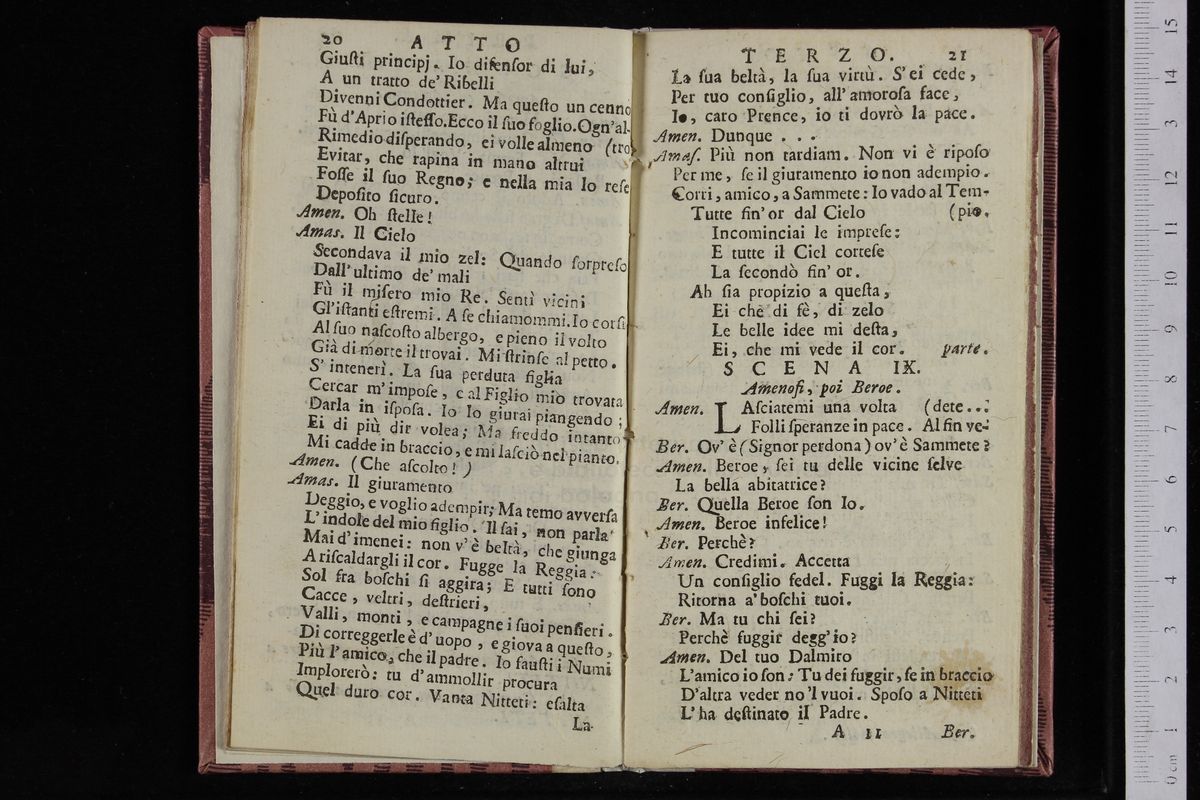 20 ATTO
Giuſti principj. Io difenſor di lui,
A un tratto de' Ribelli
Divenni Condottier. Ma queſto un cenno
Fù d'Aprio iſteſſo. Ecco il ſuo foglio. Ogn'al-
Rimedio diſperando, ei volle almeno (tro
Evitar, che rapina in mano altrui
Foſſe il ſuo Regno; e nella mia lo reſe
Depoſito ſicuro.
Amen. Oh ſtelle!
Amas. Il Cielo
Secondava il mio zel: Quando ſorpreſo
Dall'ultimo de' mali
Fù il miſero mio Re. Sentì vicini
Gl'iſtanti eſtremi. A ſe chiamommi. Io corſi
Al ſuo naſcoſto albergo, e pieno il volto
Già di morte il trovai. Mi ſtrinſe al petto.
S' intenerì. La ſua perduta figlia
Cercar m'impoſe, e al Figlio mio trovata
Darla in iſpoſa. Io lo giurai piangendo;
Ei di più dir volea; Ma freddo intanto
Mi cadde in braccio, e mi laſciò nel pianto.
Amen. (Che aſcolto!)
Amas. Il giuramento
Deggio, e voglio adempir; Ma temo avverſa
L'indole del mio figlio. Il ſai, non parla
Mai d'imenei: non v'è beltà, che giunga
A riſcaldargli il cor. Fugge la Reggia:
Sol fra boſchi ſi aggira; E tutti ſono
Cacce, veltri, deſtrieri,
Valli, monti, e campagne i ſuoi penſieri.
Di correggerle è d'uopo, e giova a queſto,
Più l'amico, che il padre. Io fauſti i Numi
Implorerò: tu d'ammollir procura
Quel duro cor. Vanta Nitteti: eſalta
La
TERZO. 21
La ſua beltà, la ſua virtù. S'ei cede,
Per tuo conſiglio, all'amoroſa face,
Io, caro Prence, io ti dovrò la pace.
Amen. Dunque . . .
Amaſ. Più non tardiam. Non vi è ripoſo
Per me, ſe il giuramento io non adempio.
Corri, amico, a Sammete: Io vado al Tem-
Tutte ſin'or dal Cielo (pio.
Incominciai le impreſe:
E tutte il Ciel corteſe
La ſecondò ſin' or.
Ah ſia propizio a queſta,
Ei che di fè, di zelo
Le belle idee mi deſta,
Ei, che mi vede il cor. parte.
SCENA IX.
Amenofi, poi Beroe.
Amen. LAſciatemi una volta (dete...:
Folli ſperanze in pace. Al fin ve-
Ber. Ov' è (Signor perdona) ov'è Sammete?
Amen. Beroe, ſei tu delle vicine ſelve
La bella abitatrice?
Ber. Quella Beroe ſon Io.
Amen. Beroe infelice!
Ber. Perchè?
Amen. Credimi. Accetta
Un conſiglio fedel. Fuggi la Reggia:
Ritorna a' boſchi tuoi.
Ber. Ma tu chi ſei?
Perchè fuggir degg'io?
Amen. Del tuo Dalmiro
L'amico io ſon: Tu dei fuggir, ſe in braccio
D'altra veder no'l vuoi. Spoſo a Nitteti
L'ha deſtinato il Padre.
A 11 Ber.
0 cm 1 2 3 4 5 6 7 8 9 10 11 12 13 14 15